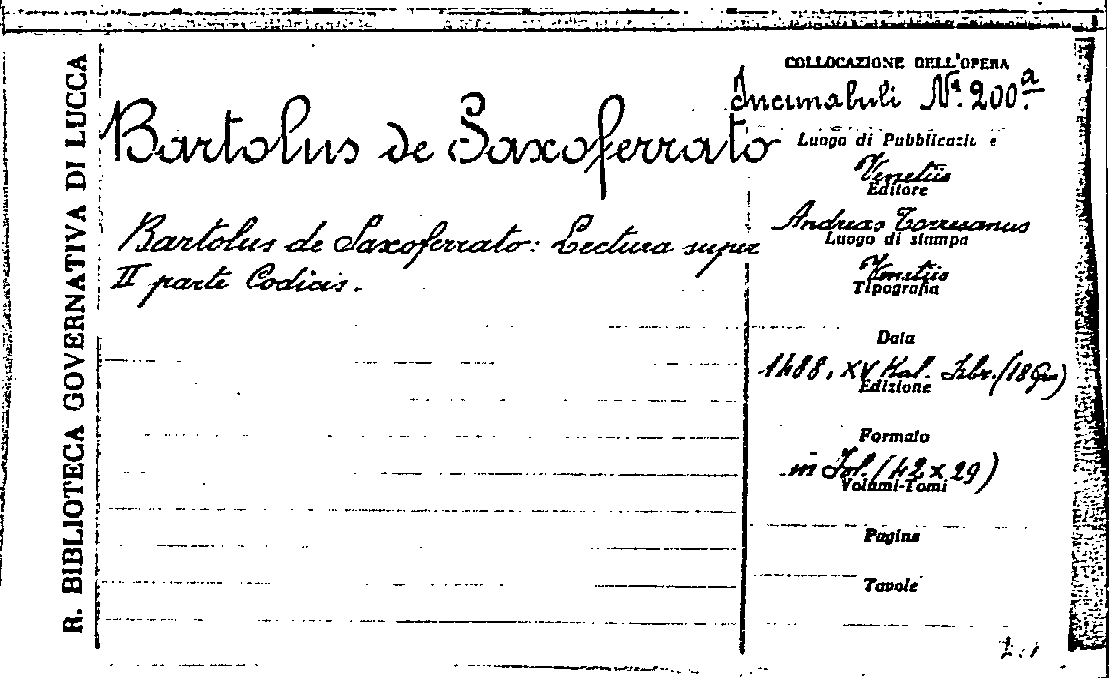 R. BIBLIOTECA GOVERNATIVA DI LUCCA
Bartolus de Saxoferrato
Bartolus de Saxoferrato: Lectura super
II parte Codicis.
COLLOCAZIONE DELL'OPERA
Incunabuli N.º 200.a
Luogo di Pubblicaz. e
Venetiis
Editore
Andreas Torresanus
Luogo di stampa
Venetiis
Tipografia
Data
1488, XV Kal. Febr. (18
Edizione
Formato
in Fol. (42 x 29)
Volumi-Tomi
Pagine
Tavole